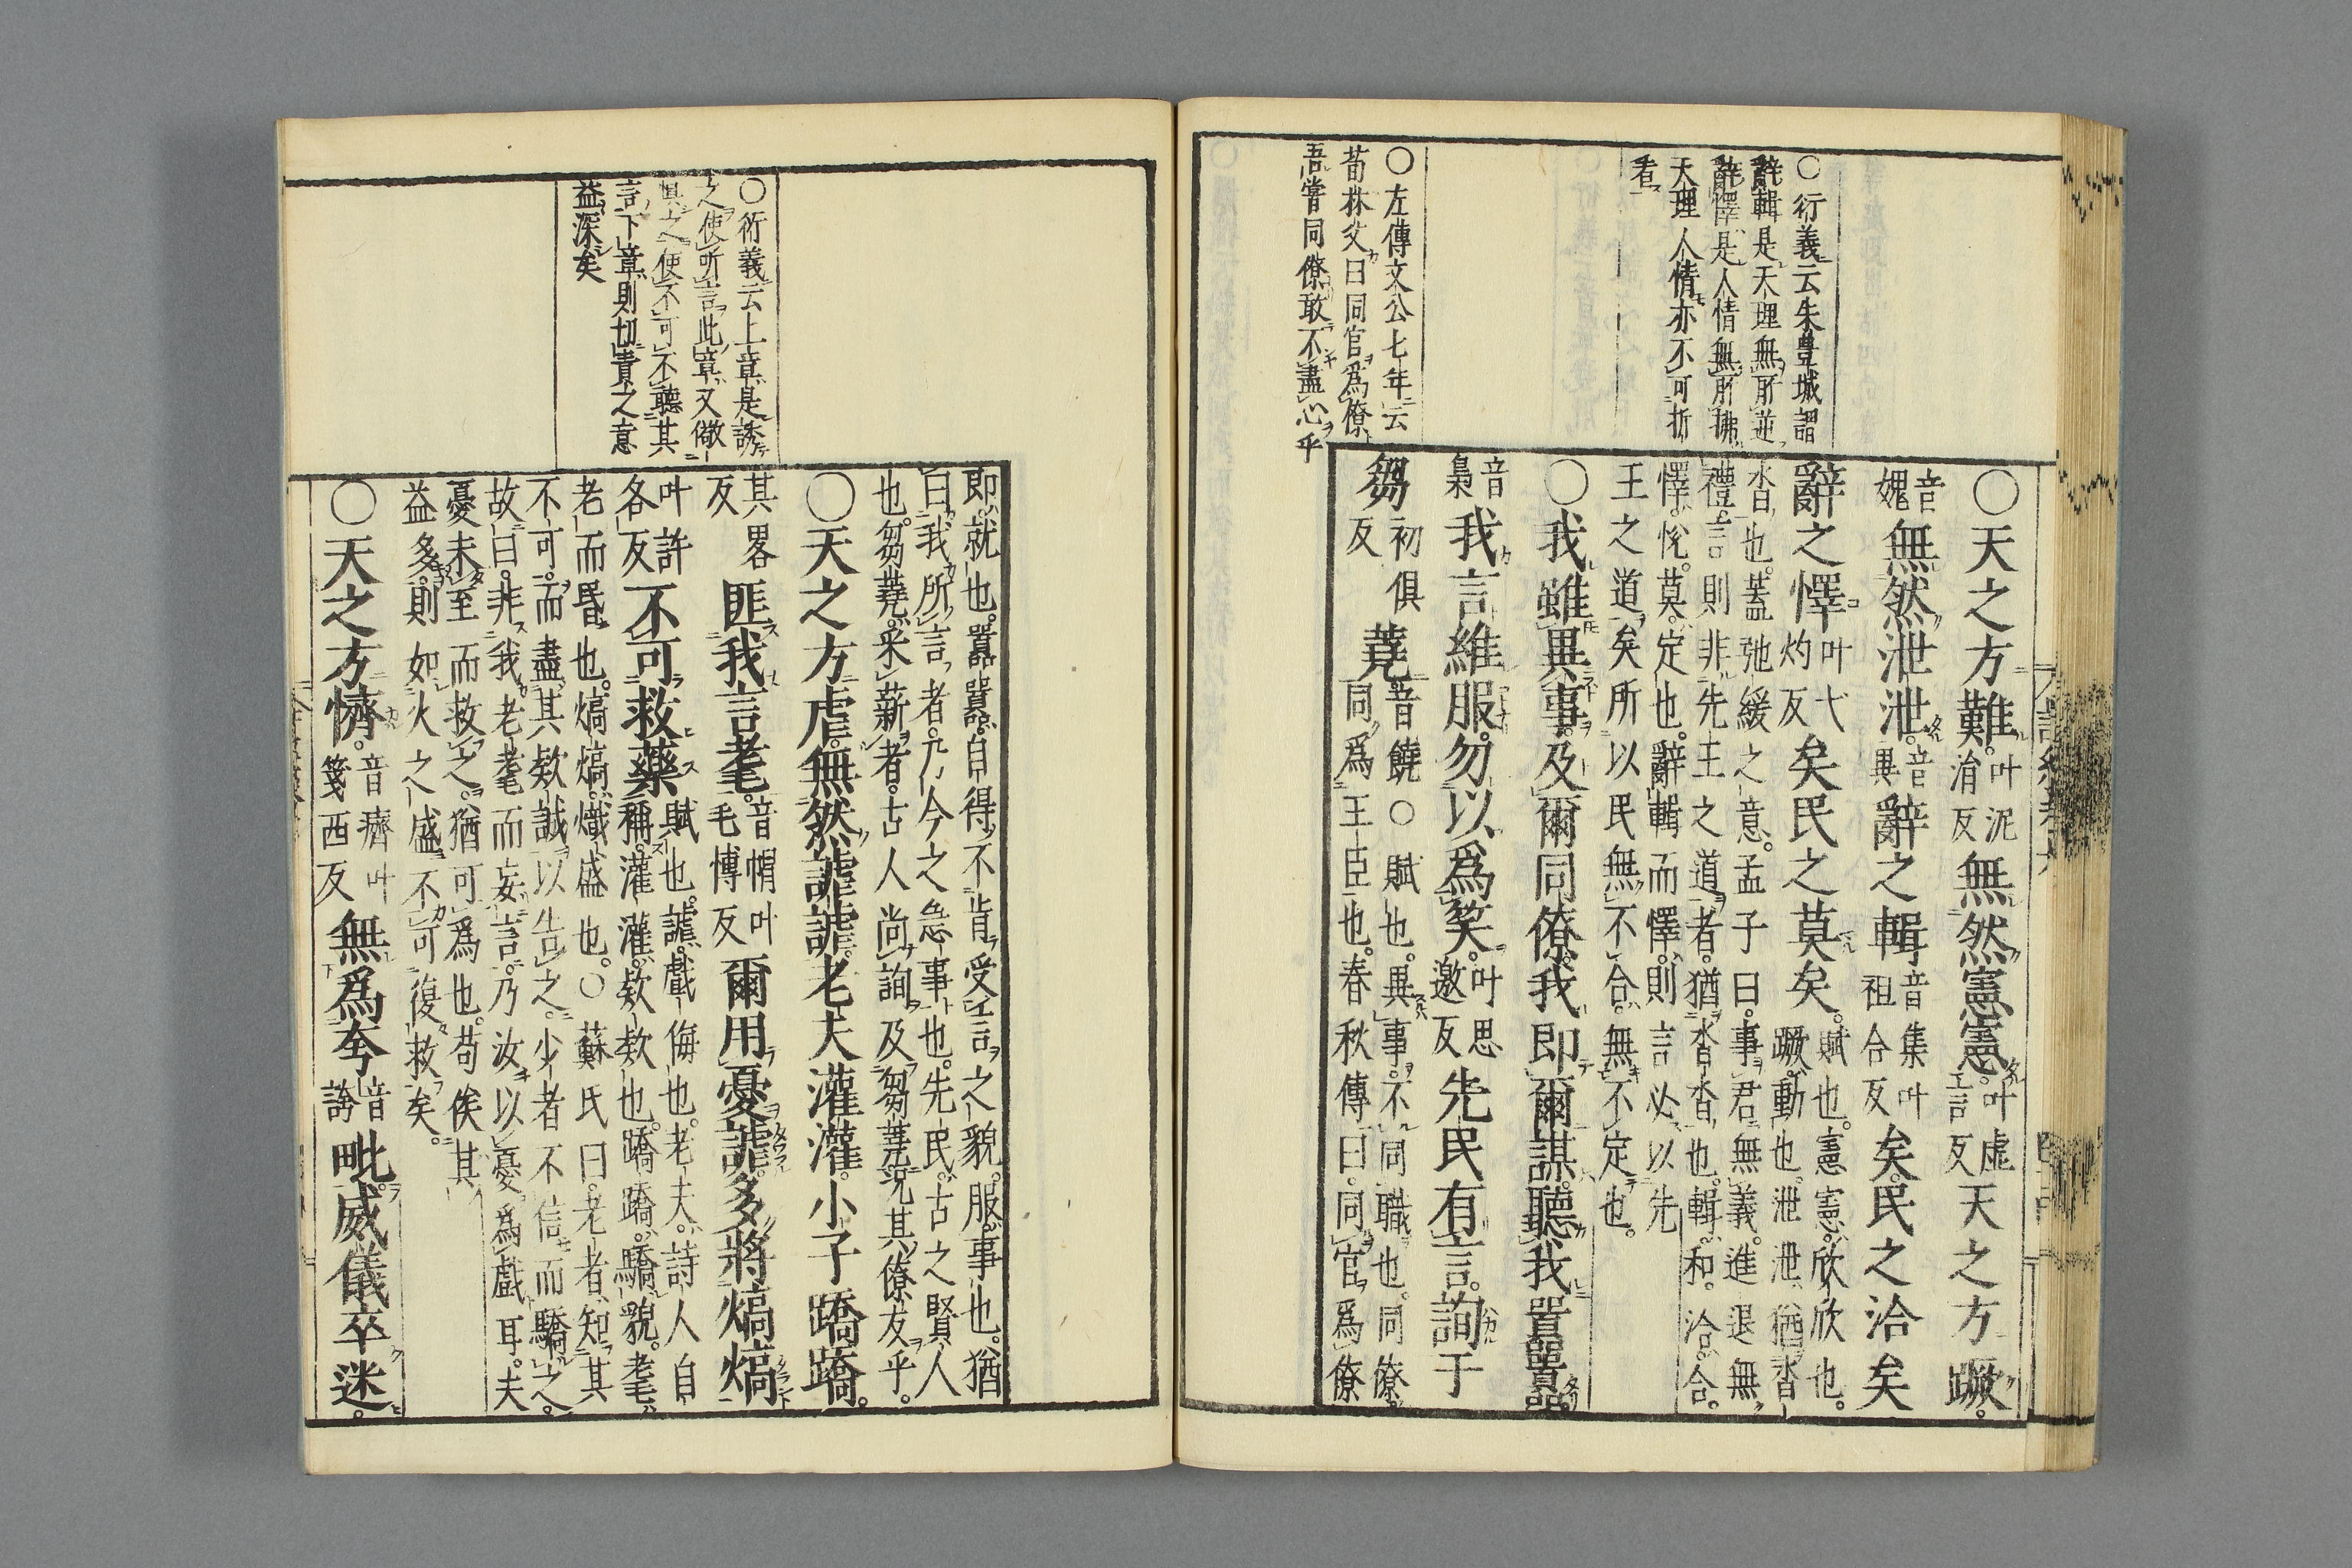 ○衍義云朱豊城謂
辭輯是天理無所逆
辭懌是人情無所拂
天理人情亦不可折
看
○左傳文公七年云
荀林父曰同官爲僚
吾嘗同僚敢不盡心乎
○天之方難叶泥涓反無然憲憲叶虛言反天之方蹶
音媿無然泄泄音異辭之輯音集叶祖合反矣民之洽矣
辭之懌叶弋灼反矣民之莫矣賦也憲憲欣欣也蹶動也泄泄猶沓
沓也蓋弛緩之意孟子曰事君無義進退無
禮言則非先王之道者猶沓沓也輯和洽合
懌悅莫定也辭輯而懌則言必以先
王之道矣所以民無不合無不定也
○我雖異事及爾同僚我即爾謀聽我囂囂
音梟我言維服勿以爲笑叶思邀反先民有言詢于
芻初俱反蕘音饒○賦也異事不同職也同僚同爲王臣也春秋傳曰同官爲僚
即就也囂囂自得不肯受言之貌服事也猶
曰我所言者乃今之急事也先民古之賢人
也芻蕘采薪者古人尚詢及芻蕘況其僚友乎
○天之方虐無然謔謔老夫灌灌小子蹻蹻
其畧反匪我言耄音帽叶毛博反爾用憂謔多將熇熇
叶許各反不可救藥賦也謔戲侮也老夫詩人自稱灌灌欵欵也蹻蹻驕貌耄
老而昬也熇熇熾盛也○蘇氏曰老者知其
不可而盡其欵誠以告之少者不信而驕之
故曰非我老耄而妄言乃汝以憂爲戲耳夫
憂未至而救之猶可爲也苟俟其
益多則如火之盛不可復救矣
○天之方懠音癠叶箋西反無爲夸音誇毗威儀卒迷
○衍義云上章是誘
之使听言此章又儆
懼之使不可不聽其
言下章則切責之意
益深矣